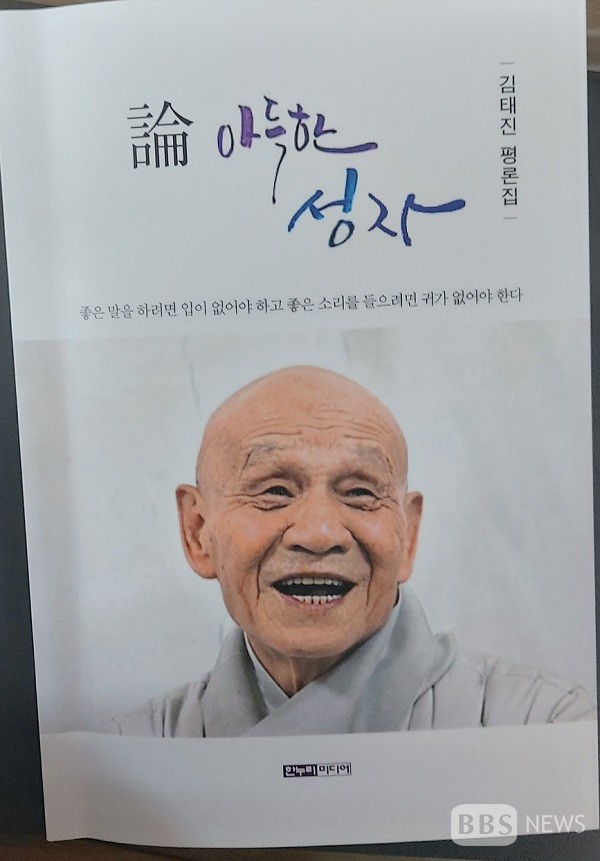 論 아득한
성자
김태진 평론집
좋은 말을 하려면 입이 없어야 하고 좋은 소리를 들으려면 귀가 없어야 한다
한누리미디어
BBS NEWS